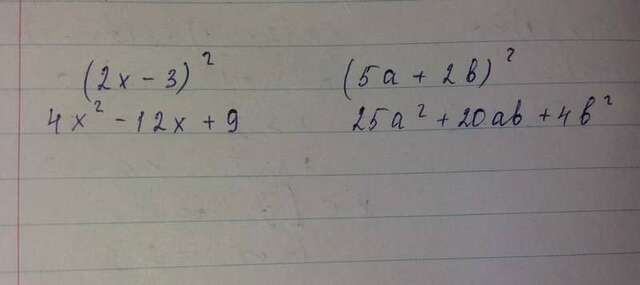 (2x - 3)²
4x² - 12x + 9
(5a + 2b)²
25a² + 20ab + 4b²